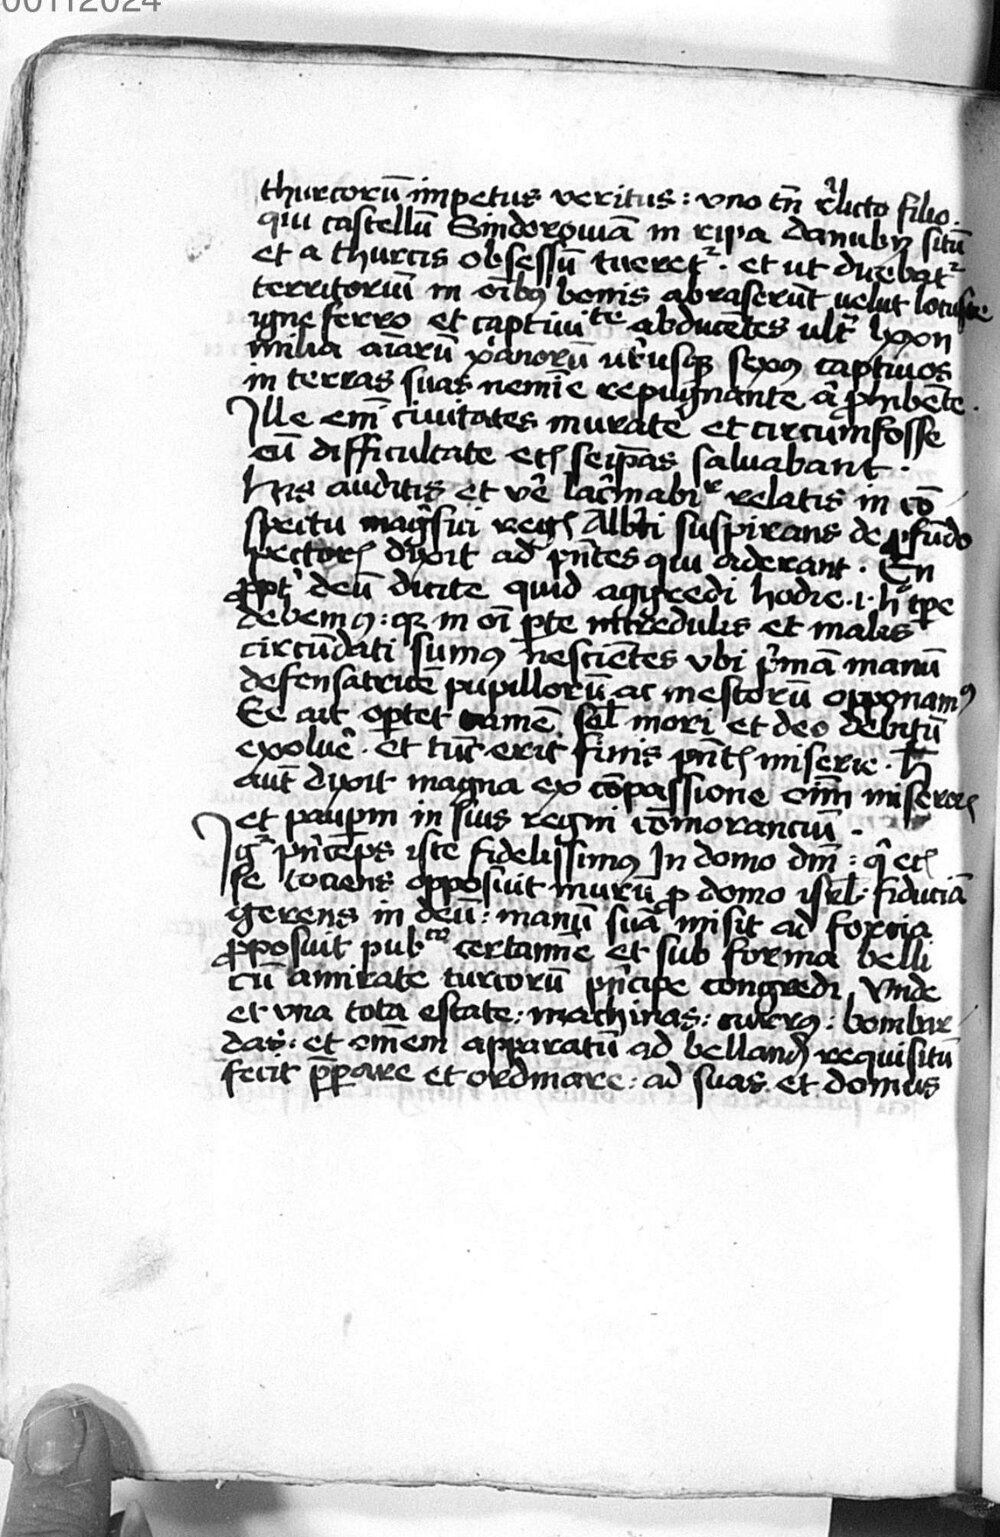 00112024
thurcorū impetus veritus : vno tn̄ rͥlicto filio .
qui castellū Sindoroviā in ripa danubij sitū
et a thurcis obsessū tueretᷣ . et ut dicebatᷣ
territoriū in oīb9 bonis abraserūt velut locuste
igne ferro et captiuite abducētes ultᷣ lxxon
milia aīarū xp̄anorū utͥusqꝫ sex9 captiuos
in terras suas nemīe repugnante aͨ ꝓhibēte .
Ille em̄ ciuitates murate et circumfosse
cū difficultate etꝭ seip̄as saluabant .
Hijs auditis et vē lac̄mabiͬ relatis in cō
spectu mag̅fici regꝭ Alb̄ti suspirans de ꝓfūdo
pectorꝭ dixit ad p̄ntes qui aderant . En
ꝓptͥ deū dicite quid aggredi hodie .i. hͦ tp̄e
debem9 : qꝫ in oī ꝑte incredulis et malis
circūdati sum9 nescientes vbi pͥmā manū
defensatricē pupillorū ac mestorū opponam9
Ee ait oꝑtet tamē . sel̄ mori et deo debitū
exoluē . et tūc erit finis p̄ntꝭ miserie . H̄
aut̄ dixit magna ex cōpassione oīm̄ miserorꝭ
et pauꝑm in suis regni cōmoranciū .
Igᷣ pͥnceps iste fidelissim9 In domo dnī : qͥ etꝭ
se tociens opposuit murū ꝓ domo isrl̄ . fiduciā
gerens in deū : manū suā misit ad forcia
ꝓposuit pubco certamīe et sub forma belli
cū amirate turcorū pͥncipe congredi . Vnde
et vna tota estate : machinas : currus : bombar
das : et om̄em apparatū ad belland requisitū
fecit p̄ꝑare et ordinare : ad suas et domus